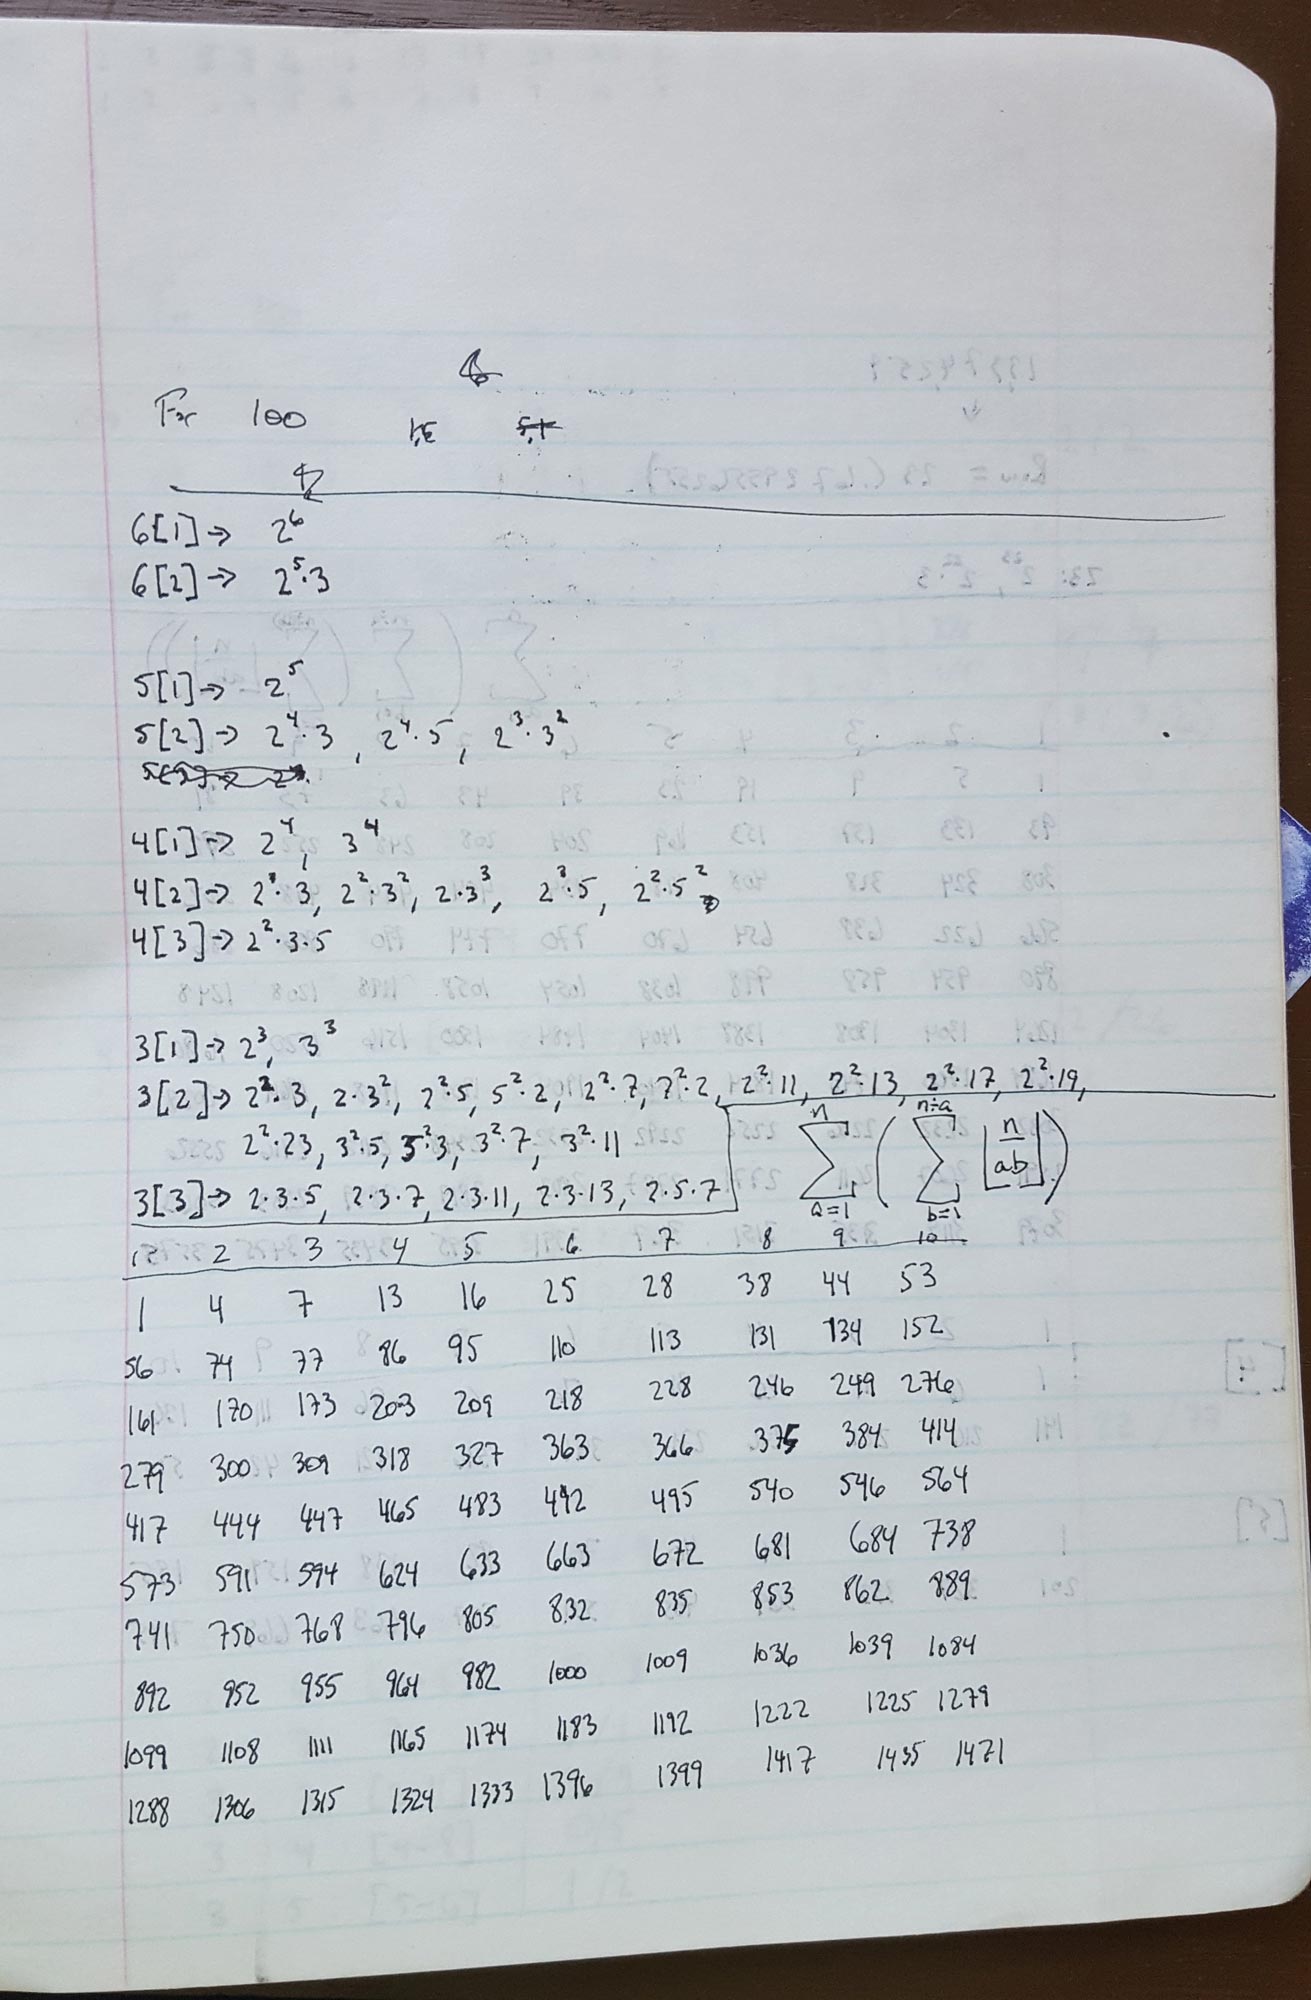 For 100
6[1]→ 2⁶
6[2]→ 2⁵·3
5[1]→ 2⁵
5[2]→ 2⁴·3, 2⁴·5, 2³·3²
4[1]→ 2⁴, 3⁴
4[2]→ 2³·3, 2²·3², 2·3³, 2³·5, 2²·5²
4[3]→ 2²·3·5
3[1]→ 2³, 3³
3[2]→ 2²·3, 2·3², 2²·5, 5²·2, 2²·7, 7²·2, 2²·11, 2²·13, 2²·17, 2²·19,
2²·23, 3²·5, 5²·3, 3²·7, 3²·11
3[3]→ 2·3·5, 2·3·7, 2·3·11, 2·3·13, 2·5·7
n∑a=1 ( n÷a∑b=1 ⌊n/ab⌋ )
1 2 3 4 5 6 7 8 9 10
1 4 7 13 16 25 28 38 44 53
56 74 77 86 95 110 113 131 134 152
161 170 173 203 209 218 228 246 249 276
279 300 309 318 327 363 366 375 384 414
417 444 447 465 483 492 495 540 546 564
573 591 594 624 633 663 672 681 684 738
741 750 768 796 805 832 835 853 862 889
892 952 955 964 982 1000 1009 1036 1039 1084
1099 1108 1111 1165 1174 1183 1192 1222 1225 1279
1288 1306 1315 1324 1333 1396 1399 1417 1435 1471